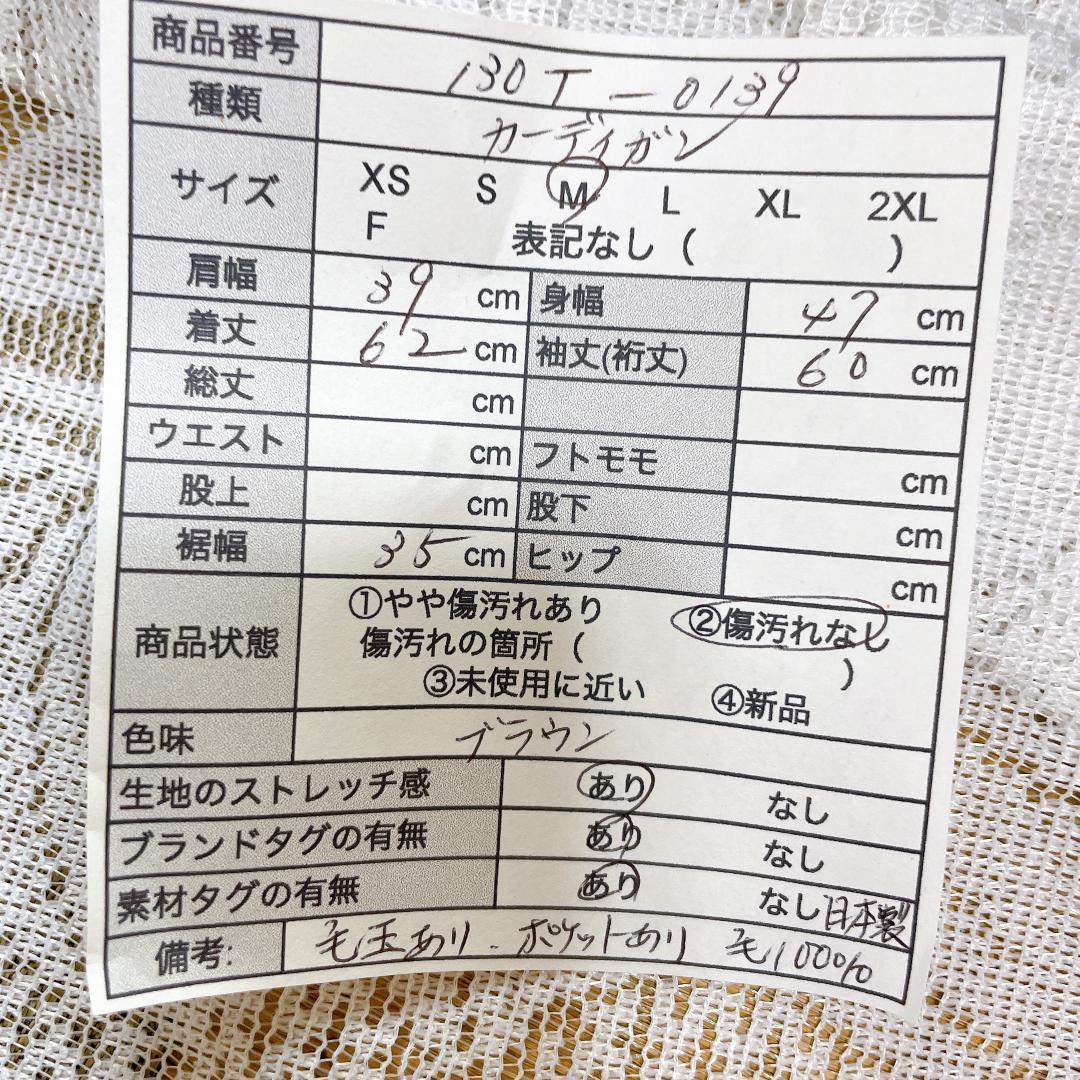 商品番号 130T-0139
種類 カーディガン
サイズ XS S M L XL 2XL
F 表記なし ( )
肩幅 39 cm 身幅 47 cm
着丈 62 cm 袖丈(裄丈) 60 cm
総丈 cm
ウエスト cm フトモモ cm
股上 cm 股下 cm
裾幅 35 cm ヒップ cm
商品状態 ①やや傷汚れあり ②傷汚れなし
傷汚れの箇所 ( )
③未使用に近い ④新品
色味 ブラウン
生地のストレッチ感 あり なし
ブランドタグの有無 あり なし
素材タグの有無 あり なし 日本製
備考: 毛玉あり.ポケットあり 毛100%